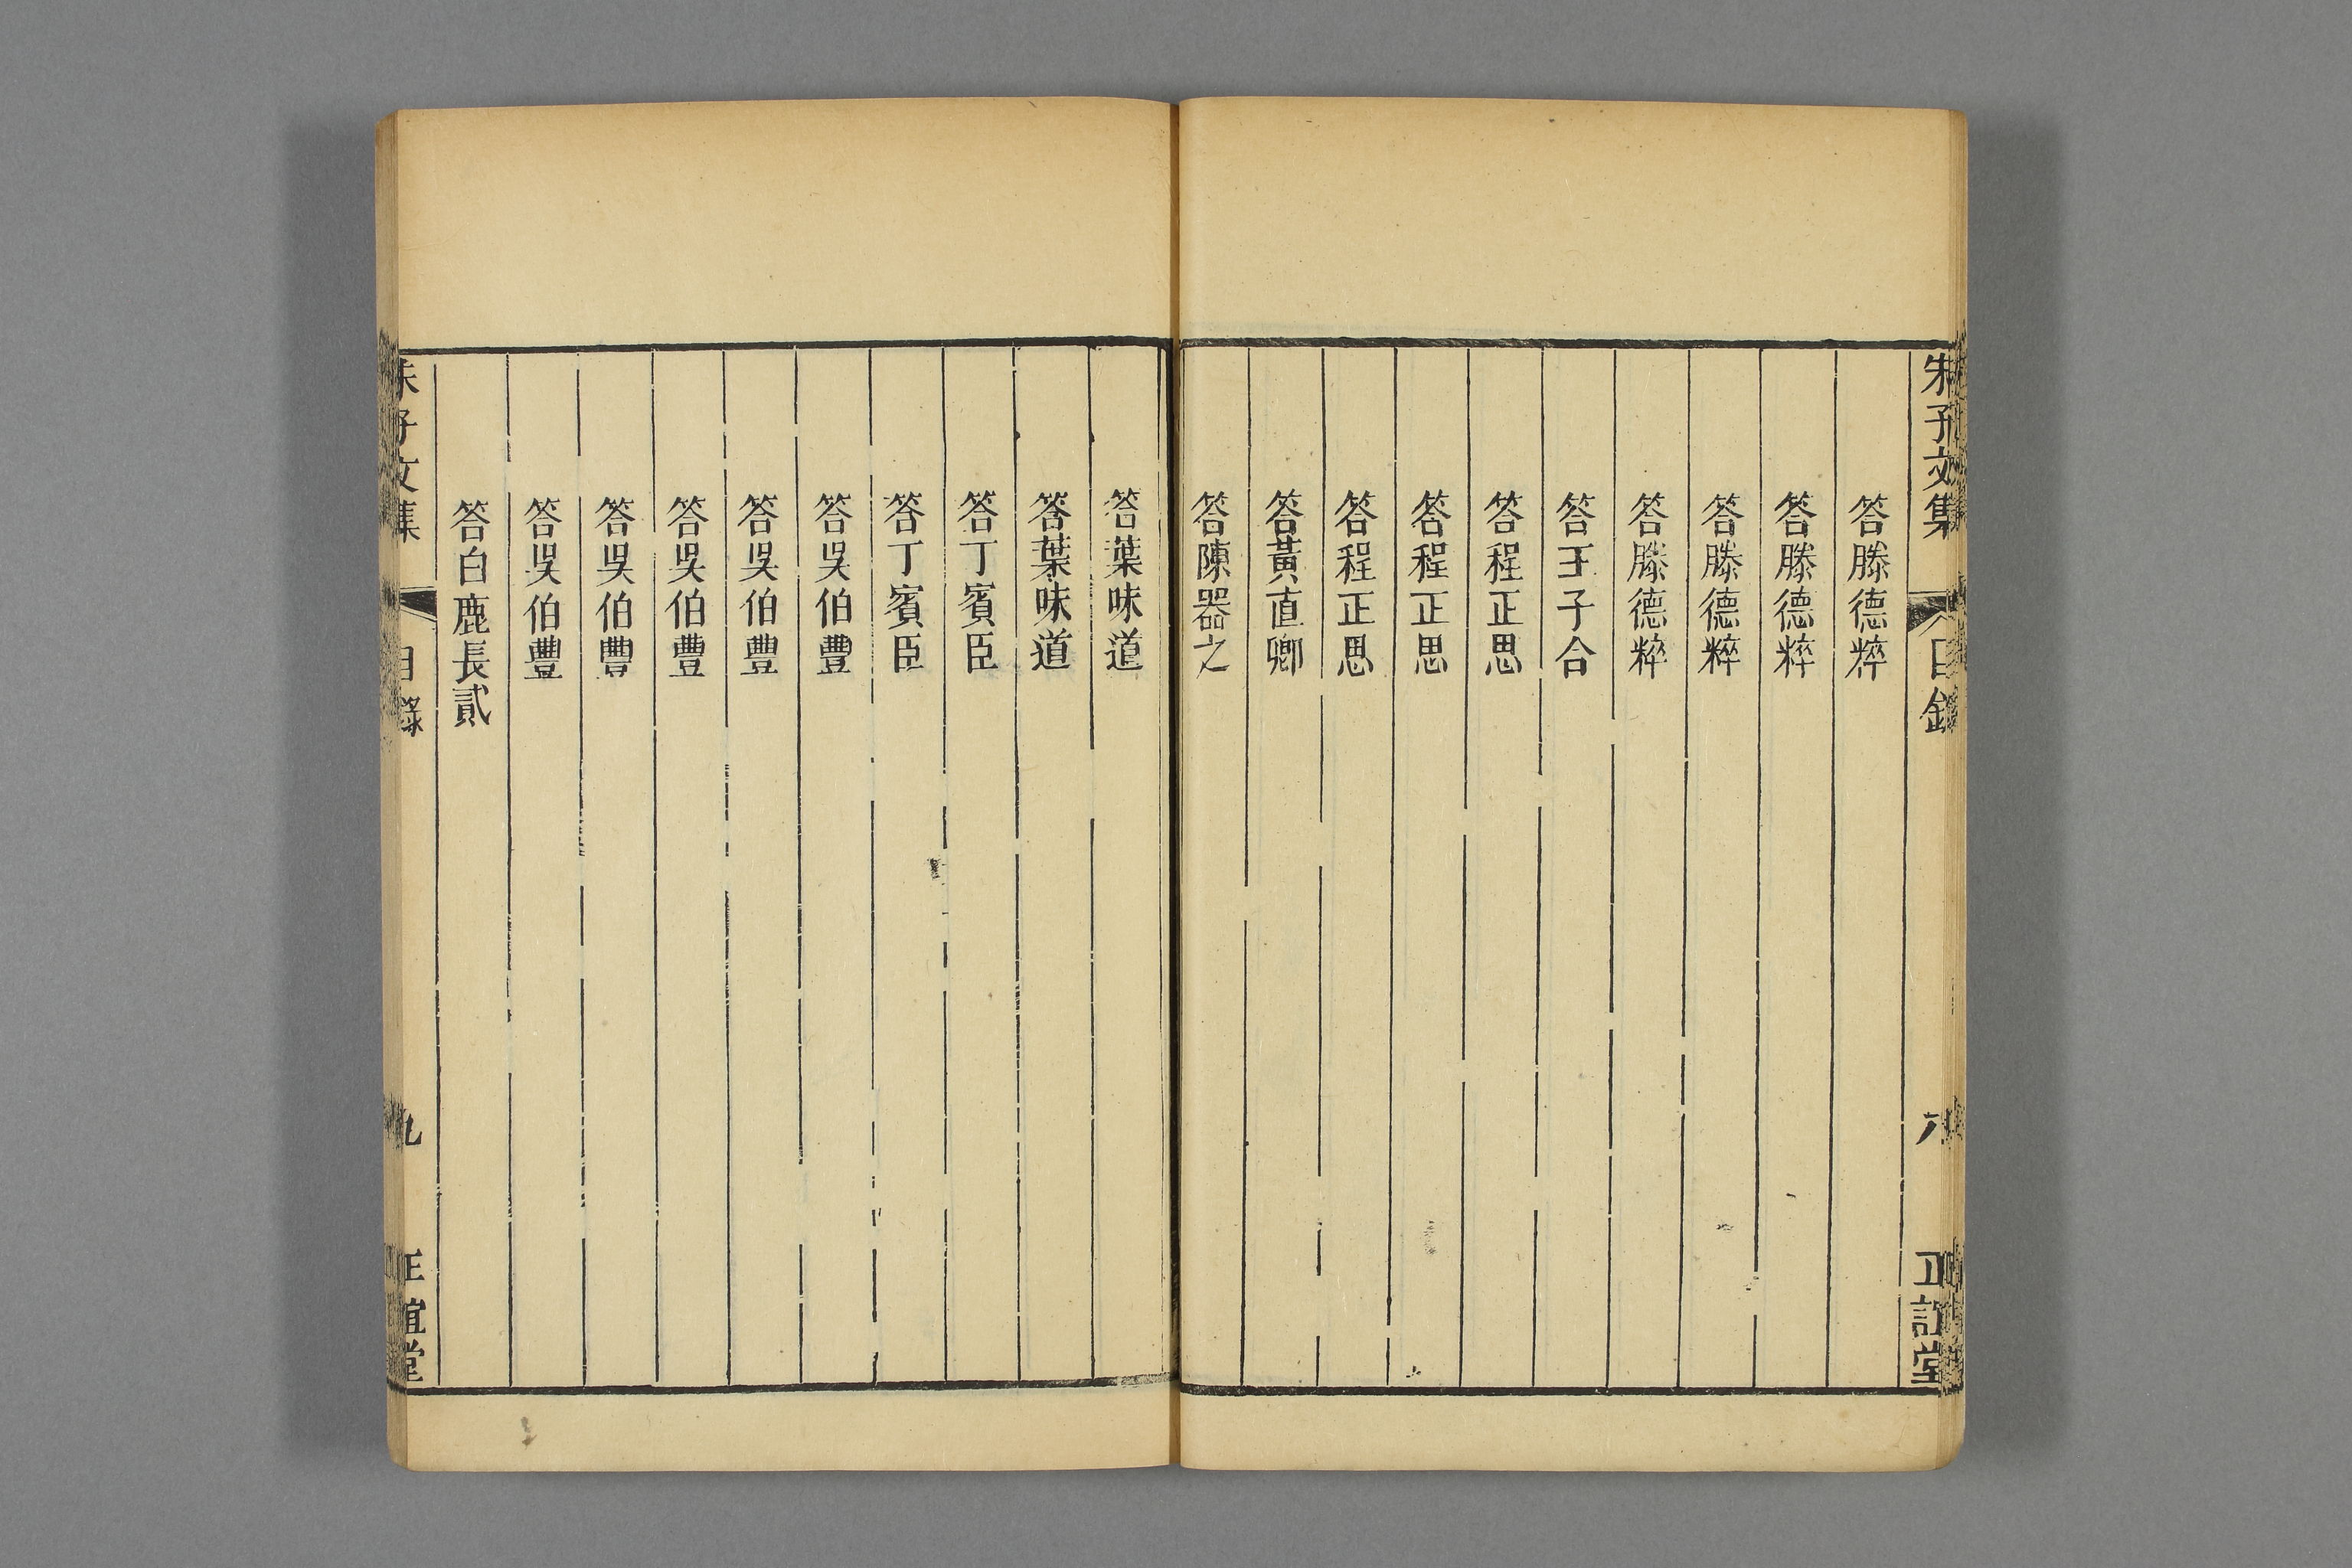 朱子文集 目錄 八 正誼堂
答滕德粹
答滕德粹
答滕德粹
答滕德粹
答王子合
答程正思
答程正思
答程正思
答黃直卿
答陳器之
答葉味道
答葉味道
答丁賓臣
答丁賓臣
答吳伯豐
答吳伯豐
答吳伯豐
答吳伯豐
答吳伯豐
答白鹿長貳
朱子文集 目錄 九 正誼堂